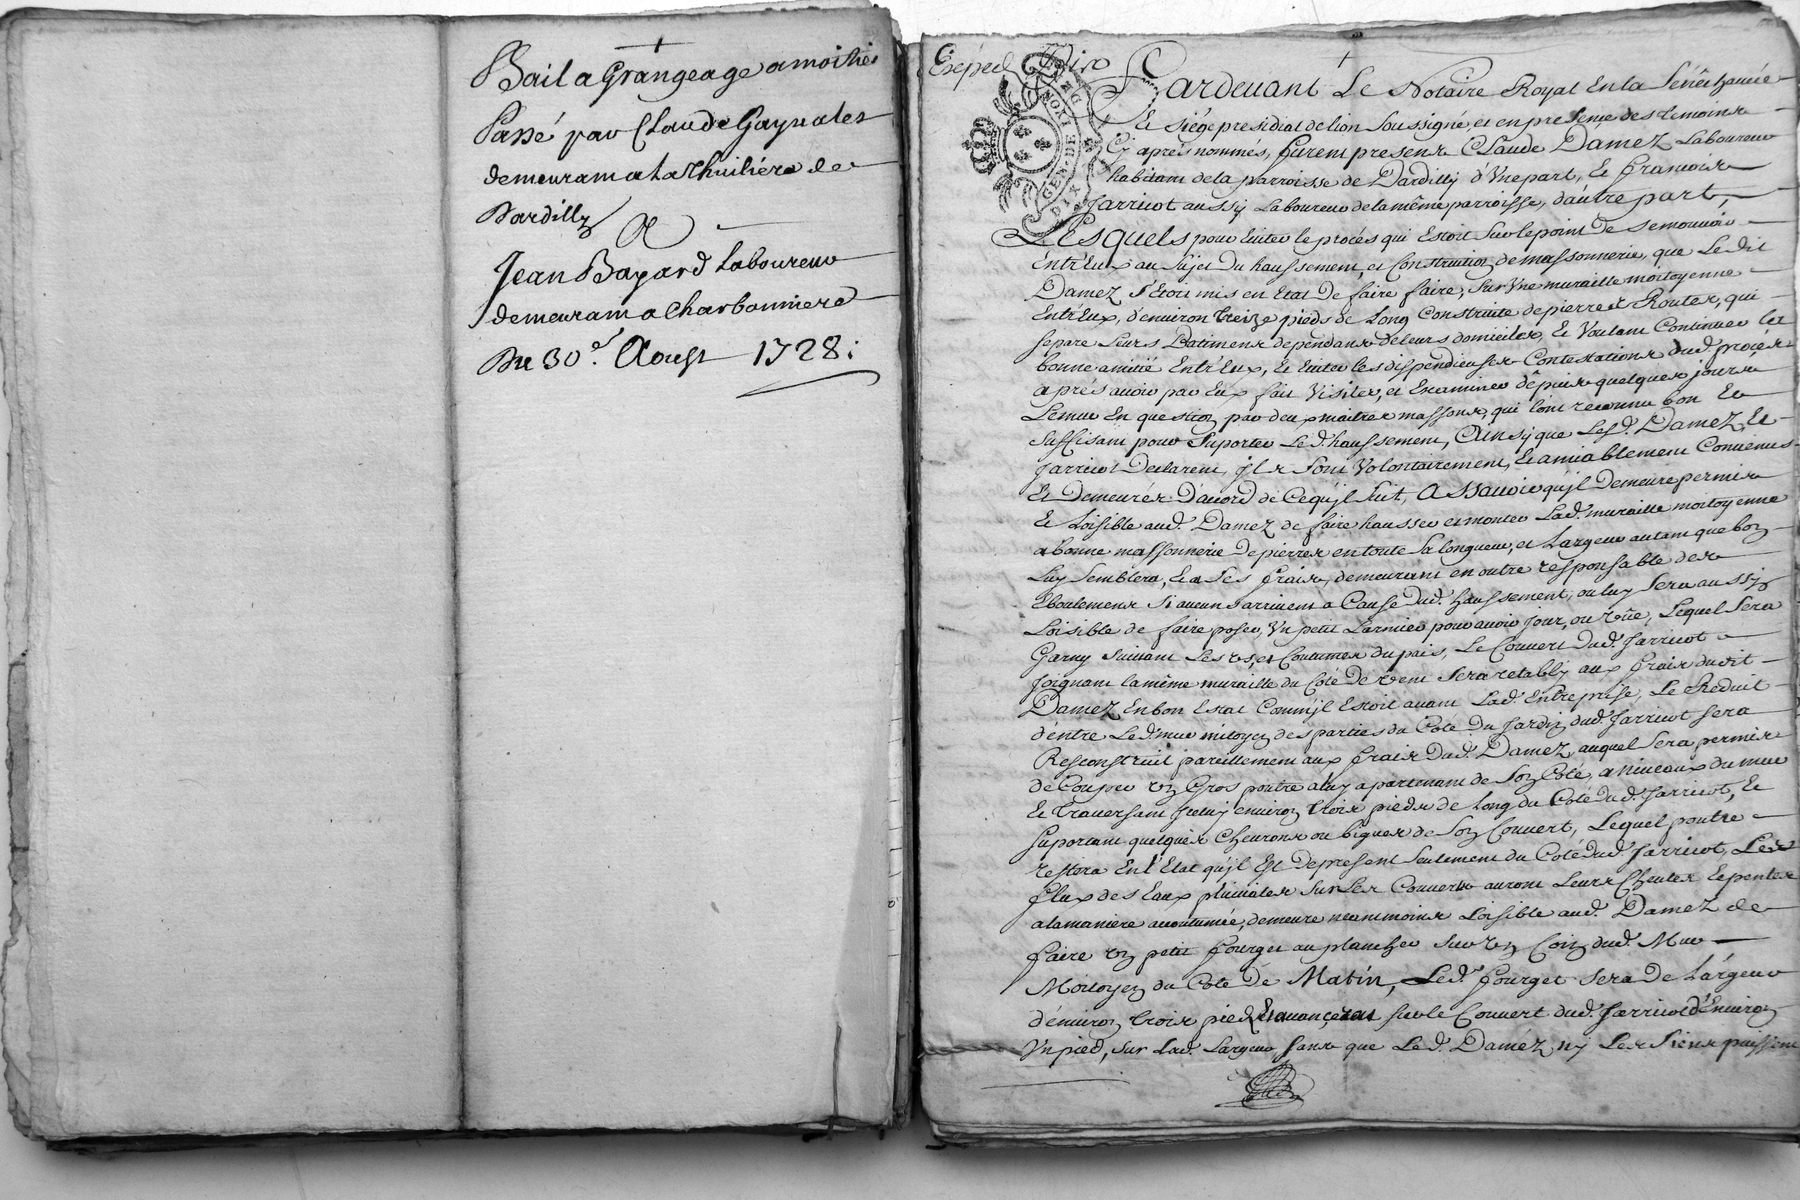 Bail a Grangeage a moitié
Passé par Claude Gayn
demeurant a La Thuiliére de
Dardilly
Et
Jean Bayard Laboureur
demeurant a Charbonniere
Du 30e. Aoust 1728.
Expéed
GEN. DE LION
DIX
Pardevant Le Notaire Royal En la Sénéchaucée
Et siége presidial de lion soussigné, et en presence des temoins
Cy aprés nommés, furent presens Claude Damez Laboureur
habitant de la parroisse de Dardilly d'Une part, Et François
Jarricot aussy Laboureur de la même parroisse, d'autre part,
Lesquels pour Eviter le procés qui Estoit sur le point de se mouvoir
Entr'Eux au sujet du haussement et Construction de massonnerie, que Le dit
Damez s'étoit mis en Etat De faire faire, sur Une muraille moitoyenne
Entr'Eux, d'environ treize pieds de Long Construite de pierre et, qui
separe Leurs Batimens dependans de leurs domiciles, Et Voulant Continuer la
bonne amitié Entr'Eux, Et Eviter les dispendieuses Contestations dud. procés
aprés avoir par Eux fait Visiter, et Examiner depuis quelques jours
Le mur En question par deux maitres massons, qui l'ont reconnu bon Et
suffisant pour suporter Le d. haussement, Ainsy que Lesd. Damez Et
Jarricot Declarent, jls sont Volontairement, Et amiablement Convenus
Et Demeurés D'acord de Ce qu'jl suit, Assavoir qu'jl Demeure permis
Et Loisible aud. Damez de faire hausser et monter Lad. muraille moitoyenne
a bonne massonnerie de pierres en toute sa longueur, et Largeur autant que bon
Luy Semblera, Et a Ses fraix, demeurant en outre responsable des
Eboulemens si aucuns arrivent a Cause dud. haussement, ou luy sera aussy
Loisible de faire poser, Un petit Larmier pour avoir jour, ou vüe, Lequel sera
Garny suivant Les us, et Coutumes du pais, Le Couvert dud. Jarricot
joignant la même muraille du Coté de vent sera retably aux fraix dudit
Damez En bon Estat Comm'jl Estoit avant Lad. Entreprise, Le Reduit
d'entre Led. mur mitoyen des parties du Coté Du Jardin dud. Jarricot sera
Resconstruit pareillement aux fraix Dud. Damez, auquel sera permis
de Couper un Gros poutre a luy apartenant de Son Coté, a niveau du mur
Et traversant jceluy environ trois pieds de long du Coté dud. Jarricot, Et
suportant quelques Chevrons ou bigues de Son Couvert, Lequel poutre
restera En l'Etat qu'jl Est De present seulement du Coté dud. Jarricot, Les
flux des Eaux pluviales sur Les Couverts auront Leurs Cheutes Et pentes
a la maniere accoutumée, demeure neanmoins Loisible aud. Damez de
faire un petit fourget au plancher sur un Coin dud. Mur
Moitoyen du Coté de Matin, Led. fourget sera de Largeur
d'environ trois pieds Et avançera sur le Couvert dud. Jarricot d'Environ
Un pied, sur lad. Largeur sans que Led. Daméz ny Les Siens puissent